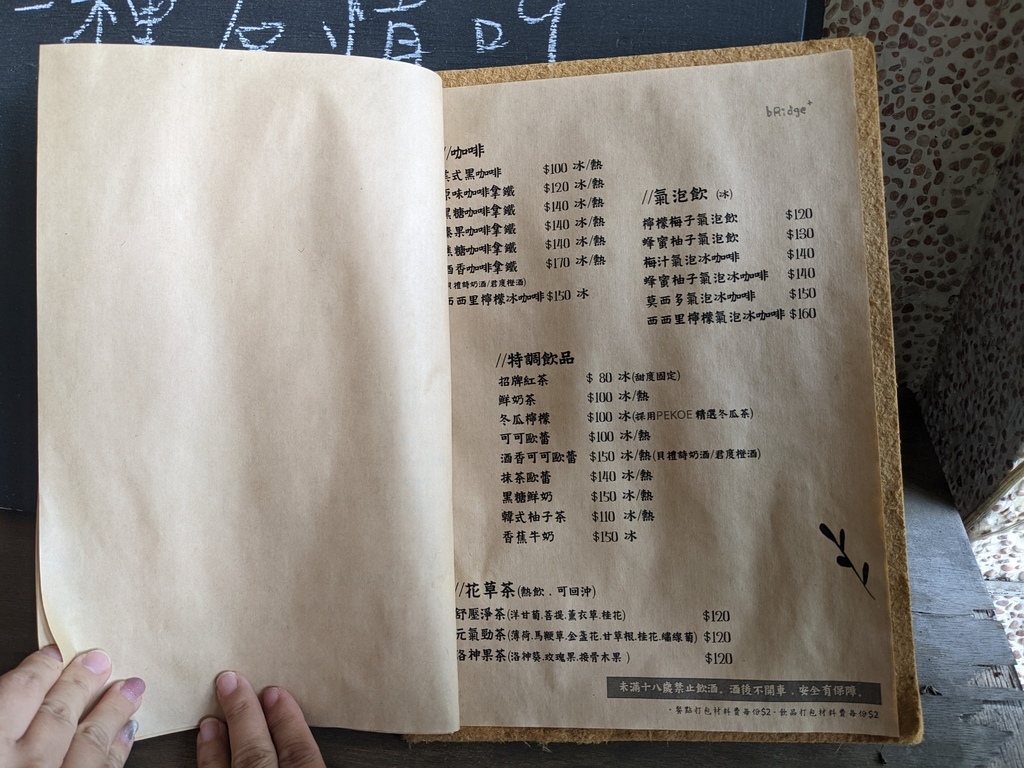 一種
bRidge+
//咖啡
式黑咖啡 $100 冰/熱
原味咖啡拿鐵 $120 冰/熱
黑糖咖啡拿鐵 $140 冰/熱
榛果咖啡拿鐵 $140 冰/熱
焦糖咖啡拿鐵 $140 冰/熱
酒香咖啡拿鐵 $170 冰/熱
貝禮詩奶酒/君度橙酒)
西西里檸檬冰咖啡 $150 冰
//氣泡飲 (冰)
檸檬梅子氣泡飲 $120
蜂蜜柚子氣泡飲 $130
梅汁氣泡冰咖啡 $140
蜂蜜柚子氣泡冰咖啡 $140
莫西多氣泡冰咖啡 $150
西西里檸檬氣泡冰咖啡 $160
//特調飲品
招牌紅茶 $ 80 冰(甜度固定)
鮮奶茶 $100 冰/熱
冬瓜檸檬 $100 冰(採用PEKOE 精選冬瓜茶)
可可歐蕾 $100 冰/熱
酒香可可歐蕾 $150 冰/熱(貝禮詩奶酒/君度橙酒)
抹茶歐蕾 $140 冰/熱
黑糖鮮奶 $150 冰/熱
韓式柚子茶 $110 冰/熱
香蕉牛奶 $150 冰
//花草茶(熱飲．可回沖)
舒壓淨茶(洋甘菊.菩提.薰衣草.桂花) $120
元氣勁茶(薄荷.馬鞭草.金盞花.甘草根.桂花.繡線菊) $120
洛神果茶(洛神葵.玫瑰果.接骨木果 ) $120
未滿十八歲禁止飲酒。酒後不開車．安全有保障。
·餐點打包材料費每份$2·飲品打包材料費每份$2